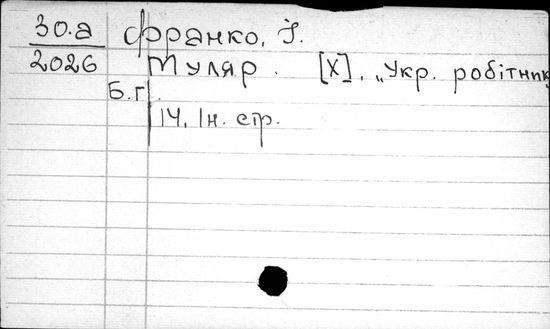 30.а Франко, І.
2026 Муляр. [Х], „Укр. робітник
Б.г.
14, Ін. стр.